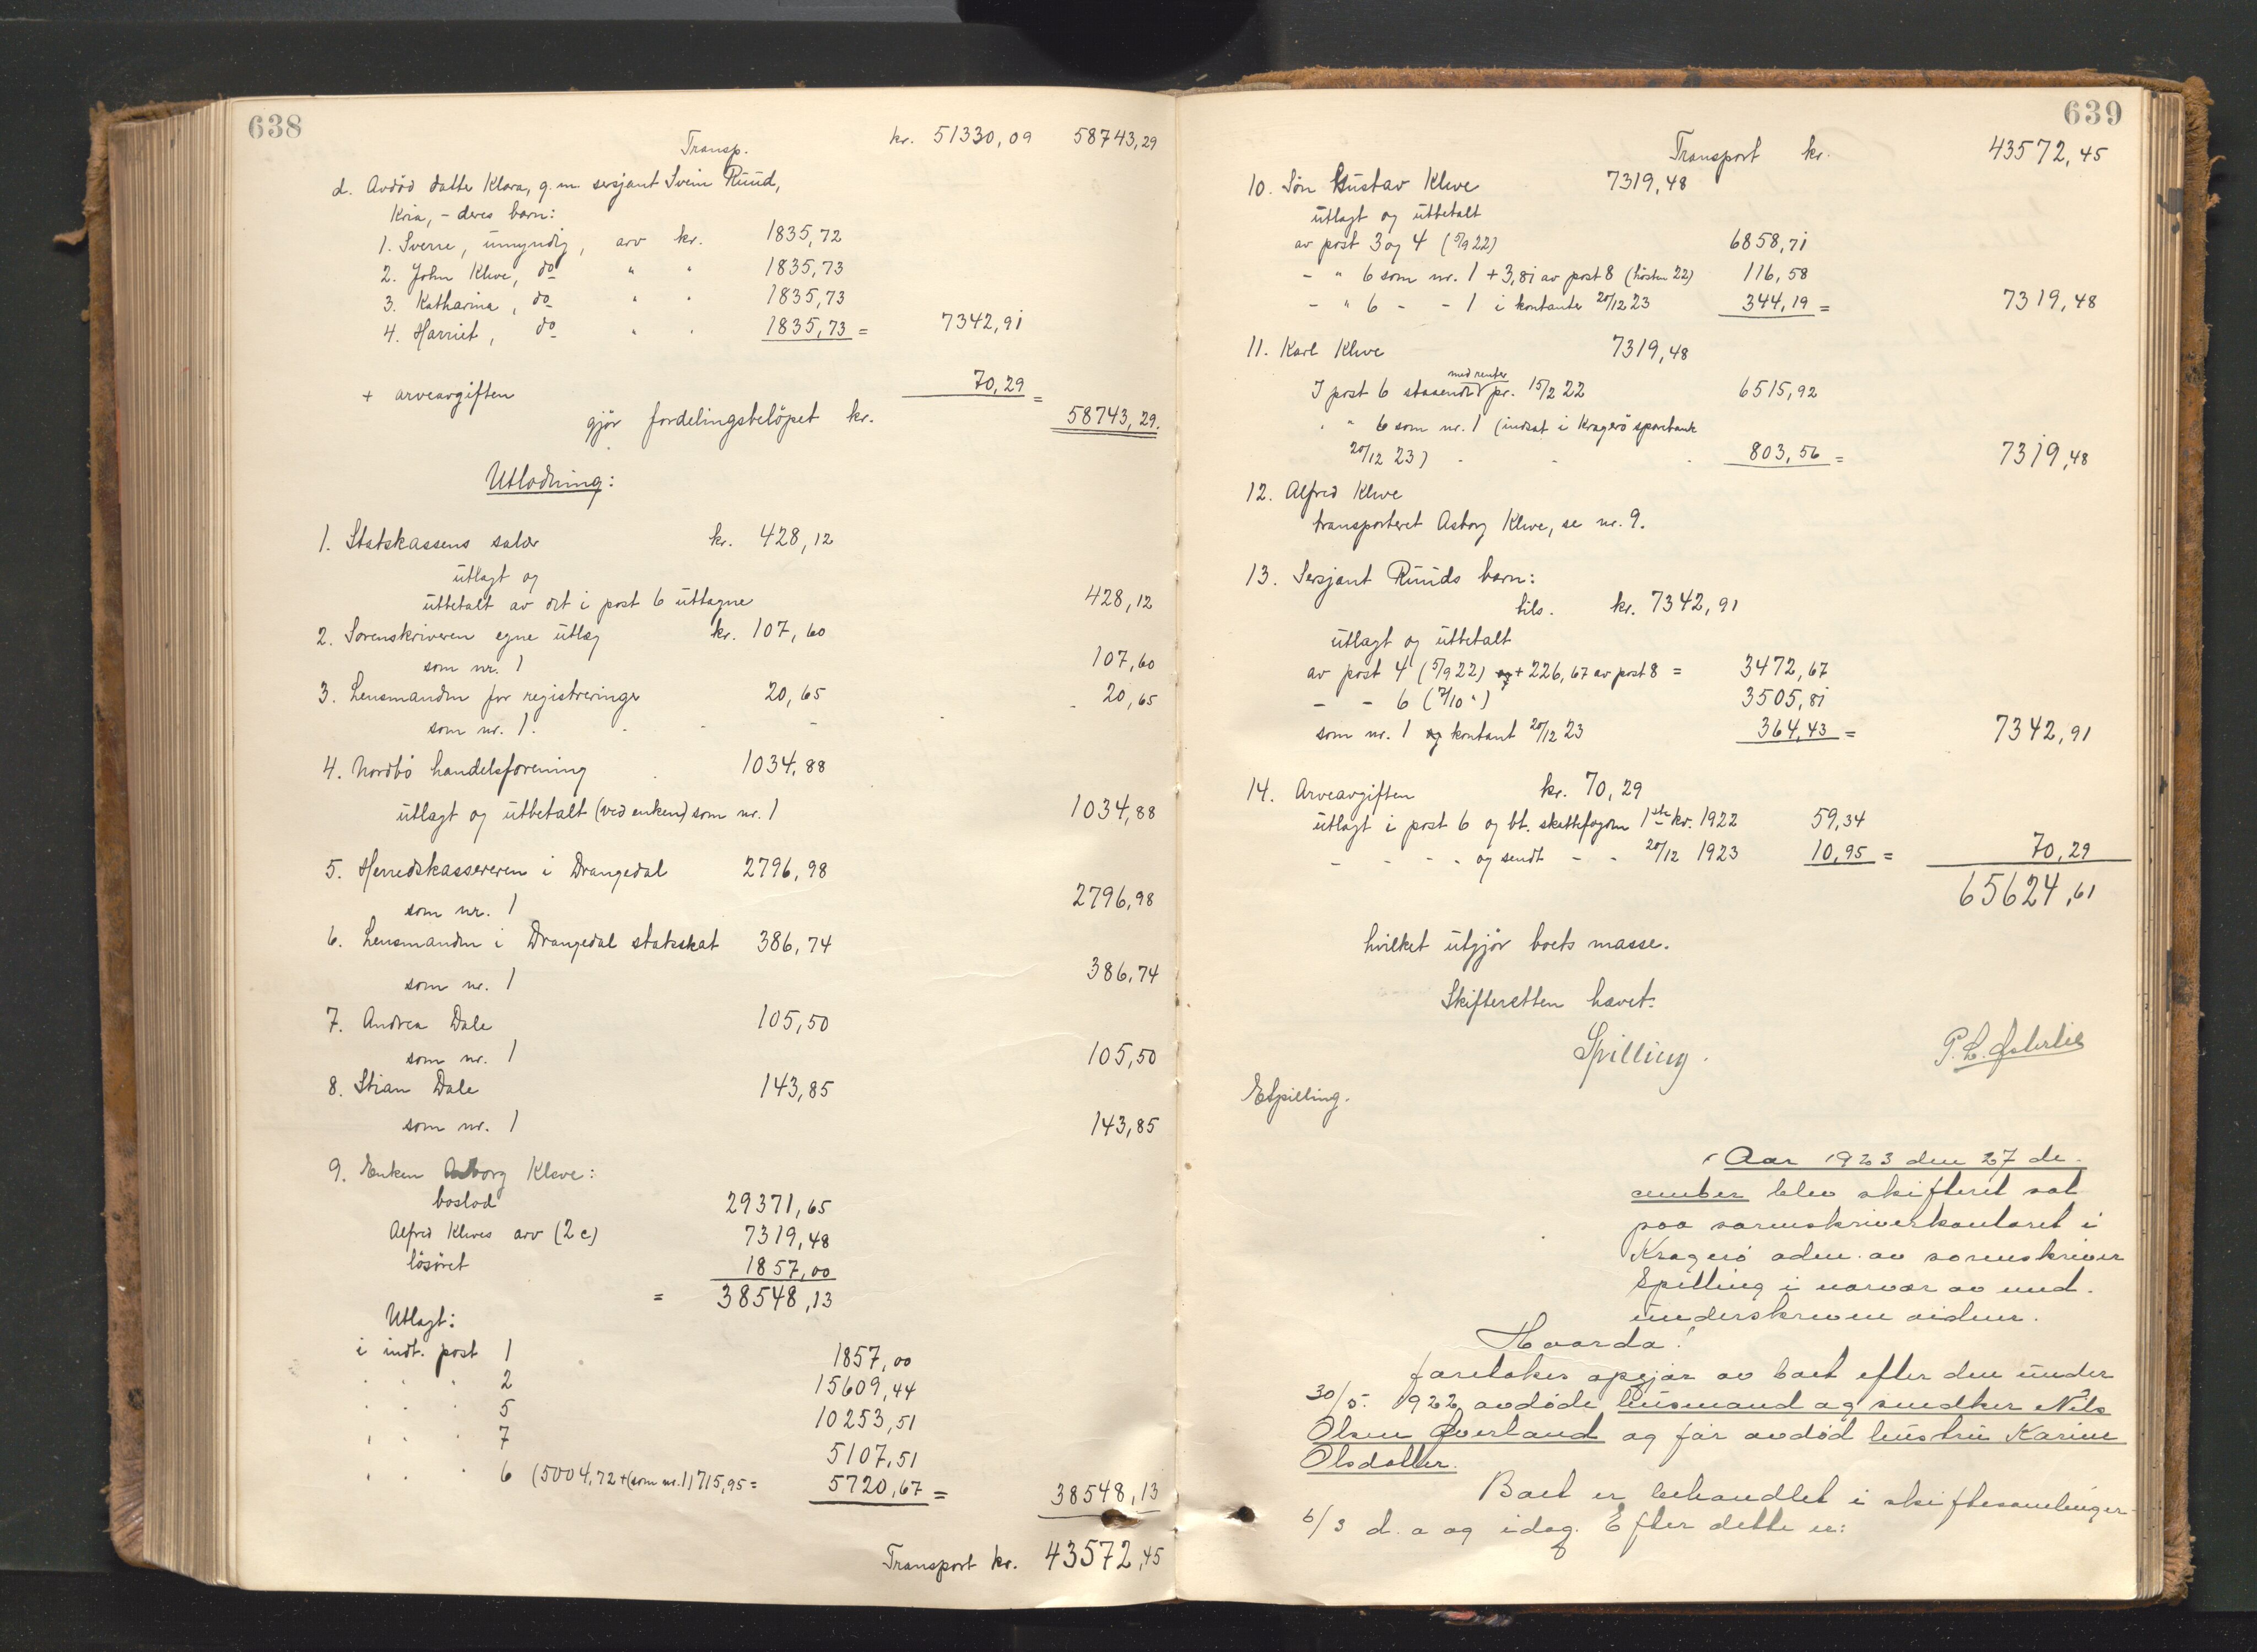 638
Transp. kr. 51330,09 58743,29
d. Avdöd datter Klara, g.m. sersjant Svein Ruud,
Kria, - deres barn:
1. Sverre, umyndig, arv kr. 1835,72
2. John Kleve, do " " 1835,73
3. Katharina, do " " 1835,73
4. Harriet, do " " 1835,73 = 7342,91
+ arveavgiften 70,29 =
gjör fordelingsbelöpet kr. 58743,29.
Utlodning:
1. Statskassens salær kr. 428,12
utlagt og
utbetalt av det i post 6 uttagne 428,12
2. Sorenskriveren egne utlæg kr. 107,60
som nr. 1 107,60
3. Lensmanden for registreringe 20,65 20,65
som nr. 1.
4. Nordbö handelsforening 1034,88
utlagt og utbetalt (ved enken) som nr. 1 1034,88
5. Herredskassereren i Drangedal 2796,98
som nr. 1 2796,98
6. Lensmanden i Drangedal statsskat 386,74
som nr. 1 386,74
7. Andrea Dale 105,50
som nr. 1 105,50
8. Stian Dale 143,85
som nr. 1 143,85
9. Enken Asborg Kleve:
boslod 29371,65
Alfred Kleves arv (2c) 7319,48
lösöret 1857,00
= 38548,13
Utlagt:
i indt. post 1 1857,00
" " " 2 15609,44
" " " 5 10253,51
" " " 7 5107,51
" " " 6 (5004,72 + (som nr. 1) 715,95 = 5720,67 = 38548,13
Transport kr. 43572,45
639
Transport kr. 43572,45
10. Sön Gustav Kleve 7319,48
utlagt og utbetalt
av post 3 og 4 (5/9 22) 6858,71
- " 6 som nr. 1 + 3,81 av post 8 (hösten 22) 116,58
- " 6 - - 1 i kontanter 20/12 23 344,19 = 7319,48
11. Karl Kleve 7319,48
I post 6 staaende med renter pr. 15/2 22 6515,92
" " 6 som nr. 1 (indsat i Kragerö sparebank
20/12 23) 803,56 = 7319,48
12. Alfred Kleve
transporteret Asborg Kleve, se nr. 9.
13. Sersjant Ruuds barn:
tils. kr. 7342,91
utlagt og utbetalt
av post 4 (5/9 22) + 226,67 av post 8 = 3472,67
- - 6 (7/10 ") 3505,81
som nr. 1 og kontant 20/12 23 364,43 = 7342,91
14. Arveavgiften kr. 70,29
utlagt i post 6 og bt. skattefogden 1ste kv. 1922 59,34
- - - - og sendt - - 20/12 1923 10,95 = 70,29
65624,61
hvilket utgjör boets masse.
Skifteretten hævet.
Spilling. P. L. Østerlie
ESpilling.
Aar 1923 den 27 de-
cember blev skifteret sat
paa sorenskriverkontoret i
Kragerö adm. av sorenskriver
Spilling i nærvær av med-
underskrevne vidner.
Hvorda:
foretokes opgjör av boet efter den under
30/5. 1922 avdöde husmand og snedker Nils
Olsen Øverland og för avdöd hustru Karine
Olsdatter.
Boet er behandlet i skiftesamlinger
6/3 d.a og idag. Efter dette er: